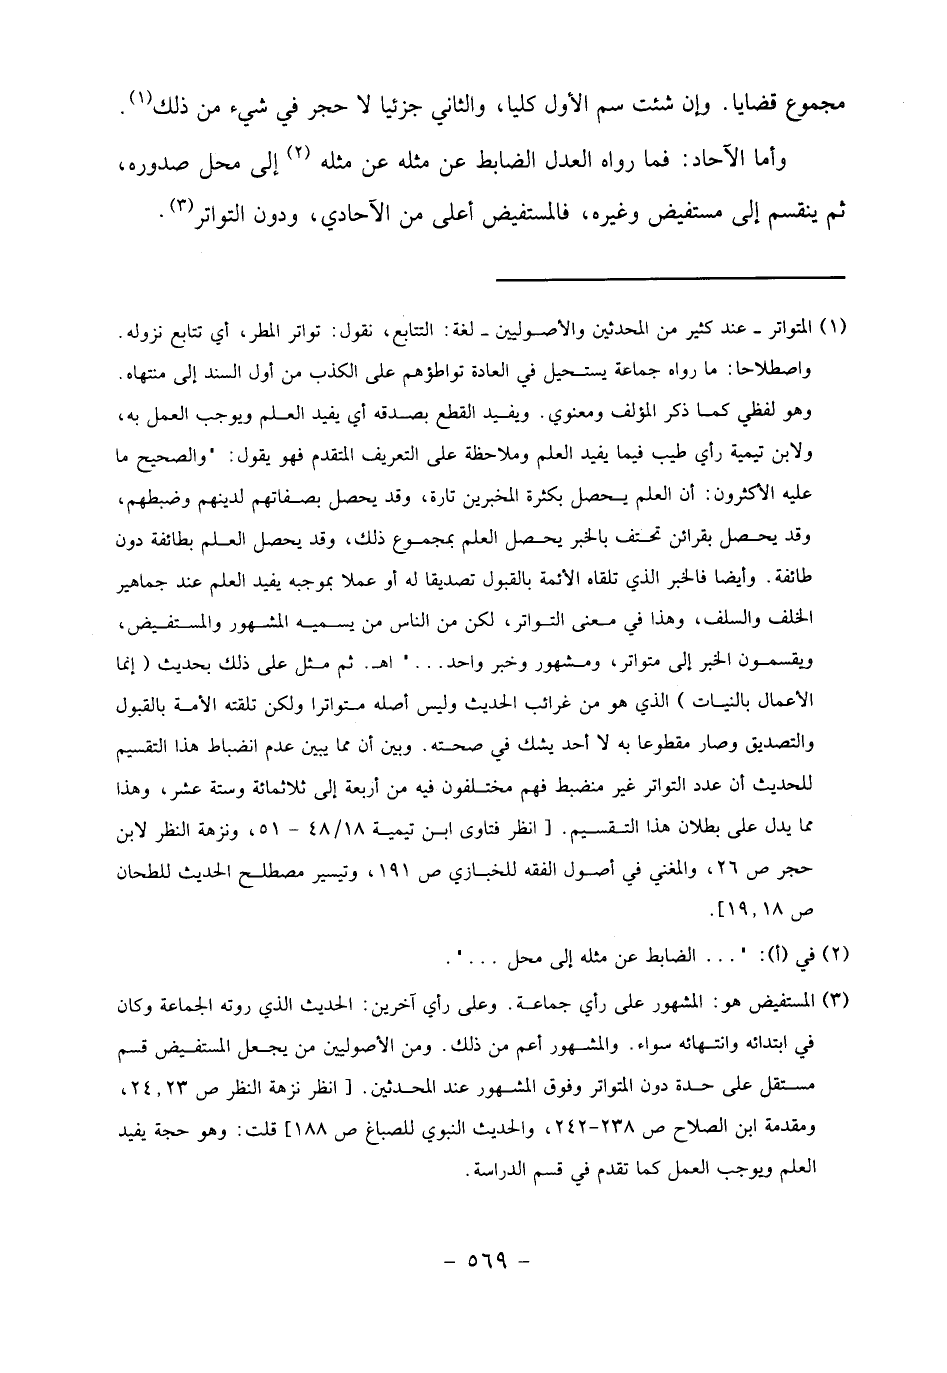 مجموع قضايا. وإن شئت سم الأول كليا، والثاني جزئيا لا حجر في شيء من ذلك(١).
وأما الآحاد: فما رواه العدل الضابط عن مثله عن مثله (٢) إلى محل صدوره،
ثم ينقسم إلى مستفيض وغيره، فالمستفيض أعلى من الآحادي، ودون التواتر(٣).
(١) المتواتر ـ عند كثير من المحدثين والأصوليين ـ لغة: التتابع، نقول: تواتر المطر، أي تتابع نزوله.
واصطلاحا: ما رواه جماعة يستحيل في العادة تواطؤهم على الكذب من أول السند إلى منتهاه.
وهو لفظي كما ذكر المؤلف ومعنوي. ويفيد القطع بصدقه أي يفيد العلم ويوجب العمل به،
ولابن تيمية رأي طيب فيما يفيد العلم وملاحظة على التعريف المتقدم فهو يقول: "والصحيح ما
عليه الأكثرون: أن العلم يحصل بكثرة المخبرين تارة، وقد يحصل بصفاتهم لدينهم وضبطهم،
وقد يحصل بقرائن تحتف بالخبر يحصل العلم بمجموع ذلك، وقد يحصل العلم بطائفة دون
طائفة. وأيضا فالخبر الذي تلقاه الأئمة بالقبول تصديقا له أو عملا بموجبه يفيد العلم عند جماهير
الخلف والسلف، وهذا في معنى التواتر، لكن من الناس من يسميه المشهور والمستفيض،
ويقسمون الخبر إلى متواتر، ومشهور وخبر واحد..." اهـ. ثم مثل على ذلك بحديث ( إنما
الأعمال بالنيات ) الذي هو من غرائب الحديث وليس أصله متواترا ولكن تلقته الأمة بالقبول
والتصديق وصار مقطوعا به لا أحد يشك في صحته. وبين أن مما يبين عدم انضباط هذا التقسيم
للحديث أن عدد التواتر غير منضبط فهم مختلفون فيه من أربعة إلى ثلاثمائة وستة عشر، وهذا
مما يدل على بطلان هذا التقسيم. [ انظر فتاوى ابن تيمية ٤٨/١٨ - ٥١، ونزهة النظر لابن
حجر ص ٢٦، والمغني في أصول الفقه للخبازي ص ١٩١، وتيسير مصطلح الحديث للطحان
ص ١٨, ١٩].
(٢) في (أ): "... الضابط عن مثله إلى محل ...".
(٣) المستفيض هو: المشهور على رأي جماعة. وعلى رأي آخرين: الحديث الذي روته الجماعة وكان
في ابتدائه وانتهائه سواء. والمشهور أعم من ذلك. ومن الأصوليين من يجعل المستفيض قسم
مستقل على حدة دون المتواتر وفوق المشهور عند المحدثين. [ انظر نزهة النظر ص ٢٣, ٢٤،
ومقدمة ابن الصلاح ص ٢٣٨-٢٤٢، والحديث النبوي للصباغ ص ١٨٨] قلت: وهو حجة يفيد
العلم ويوجب العمل كما تقدم في قسم الدراسة.
- ٥٦٩ -